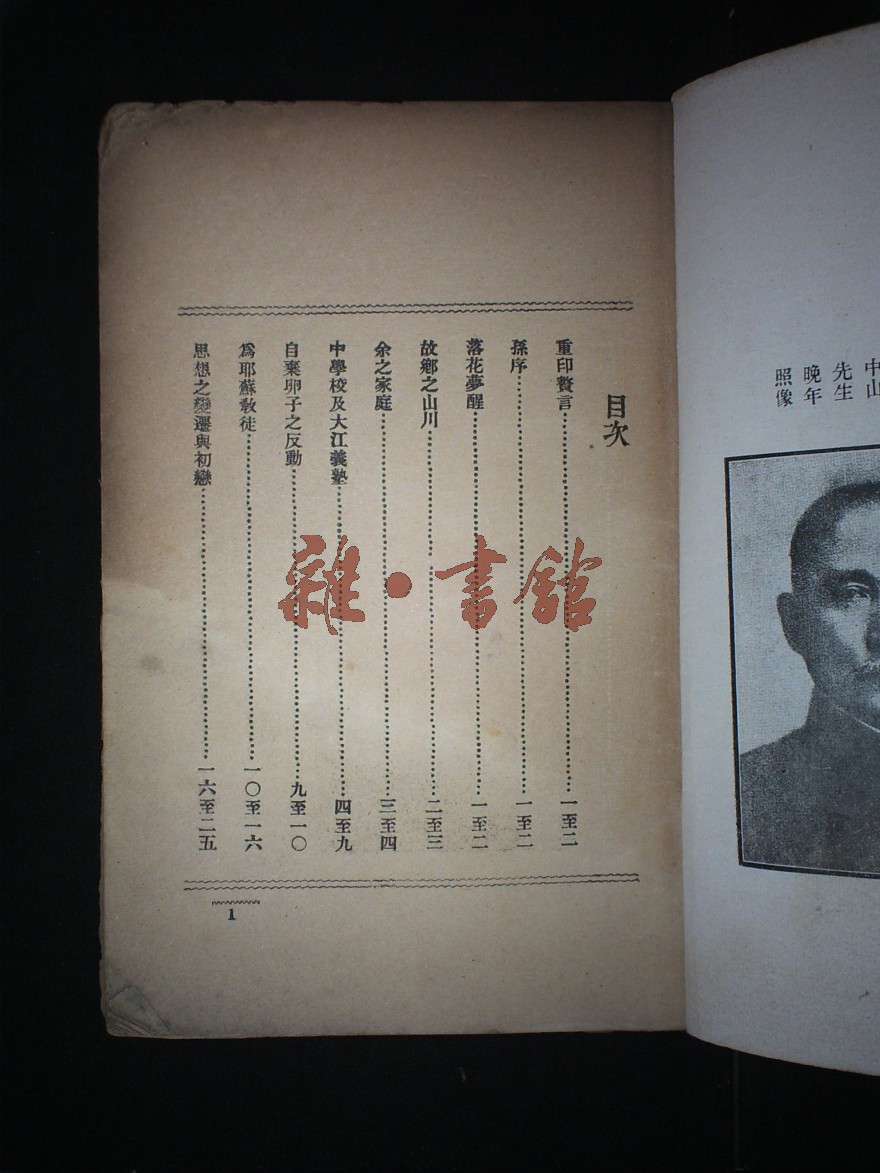 中山
先生
晚年
照像
目次
重印贅言……一至二
孫序……一至二
落花夢醒……一至二
故鄉之山川……二至三
余之家庭……三至四
中學校及大江義塾……四至九
自棄卵子之反動……九至一〇
爲耶蘇敎徒……一〇至一六
思想之變遷與初戀……一六至二五
1
雜·書館